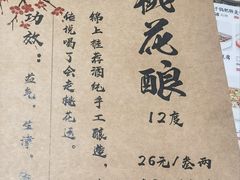 桃花酿
12度
26元/叁两
锦上推荐酒纯手工酿造，
任说喝了会走桃花运。
功放：益气，生津，